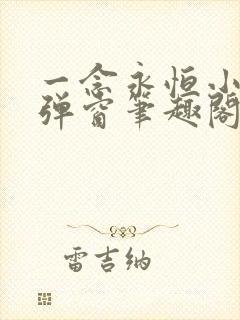 一念永恒小
弹窗笔趣阁
雷吉纳